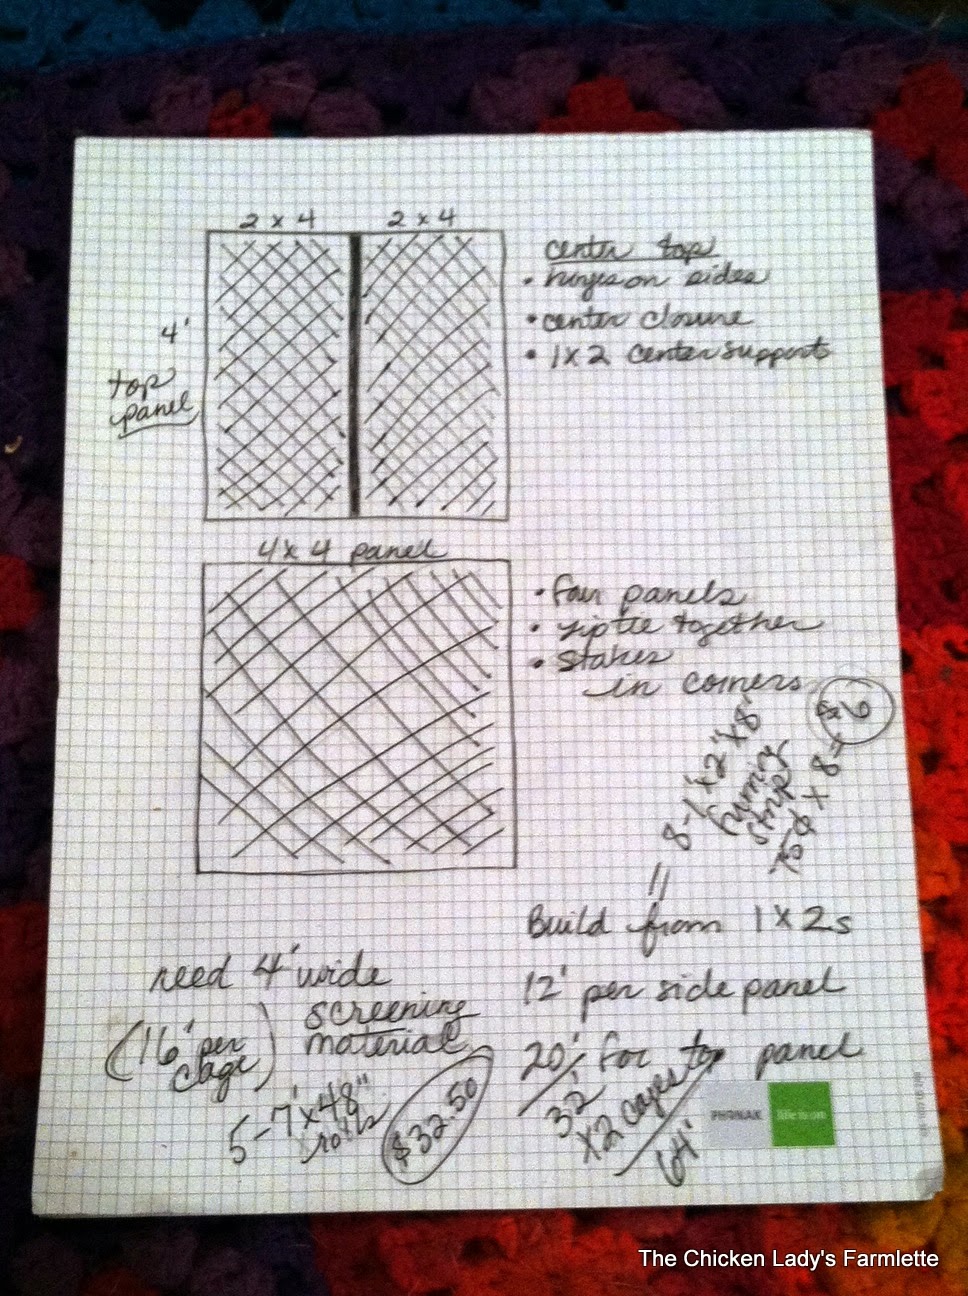 2 x 4 2 x 4
4'
top
panel
center top
• hinges on sides
• center closure
• 1x2 center support
4 x 4 panel
• four panels
• ziptie together
• stakes
in corners
8-1"x2"x8'
furring
strips
75¢ x 8 =
$6
Build from 1 x 2s
12' per side panel
20' for top panel
32'
x2 cages
64'
need 4' wide
screening
material
(16' per
cage)
5-7'x48"
rolls
$32.50
PHONAK
life is on
The Chicken Lady's Farmlette